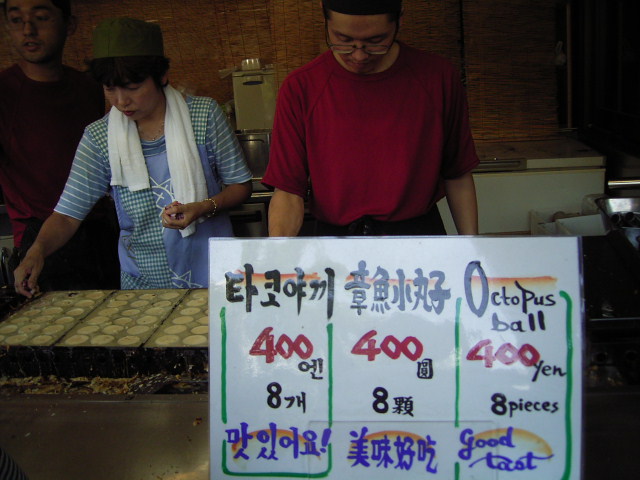 타코야끼
400엔
8개
맛있어요!
章魚小丸子
400圓
8顆
美味好吃
Octopus
ball
400yen
8pieces
Good
tast